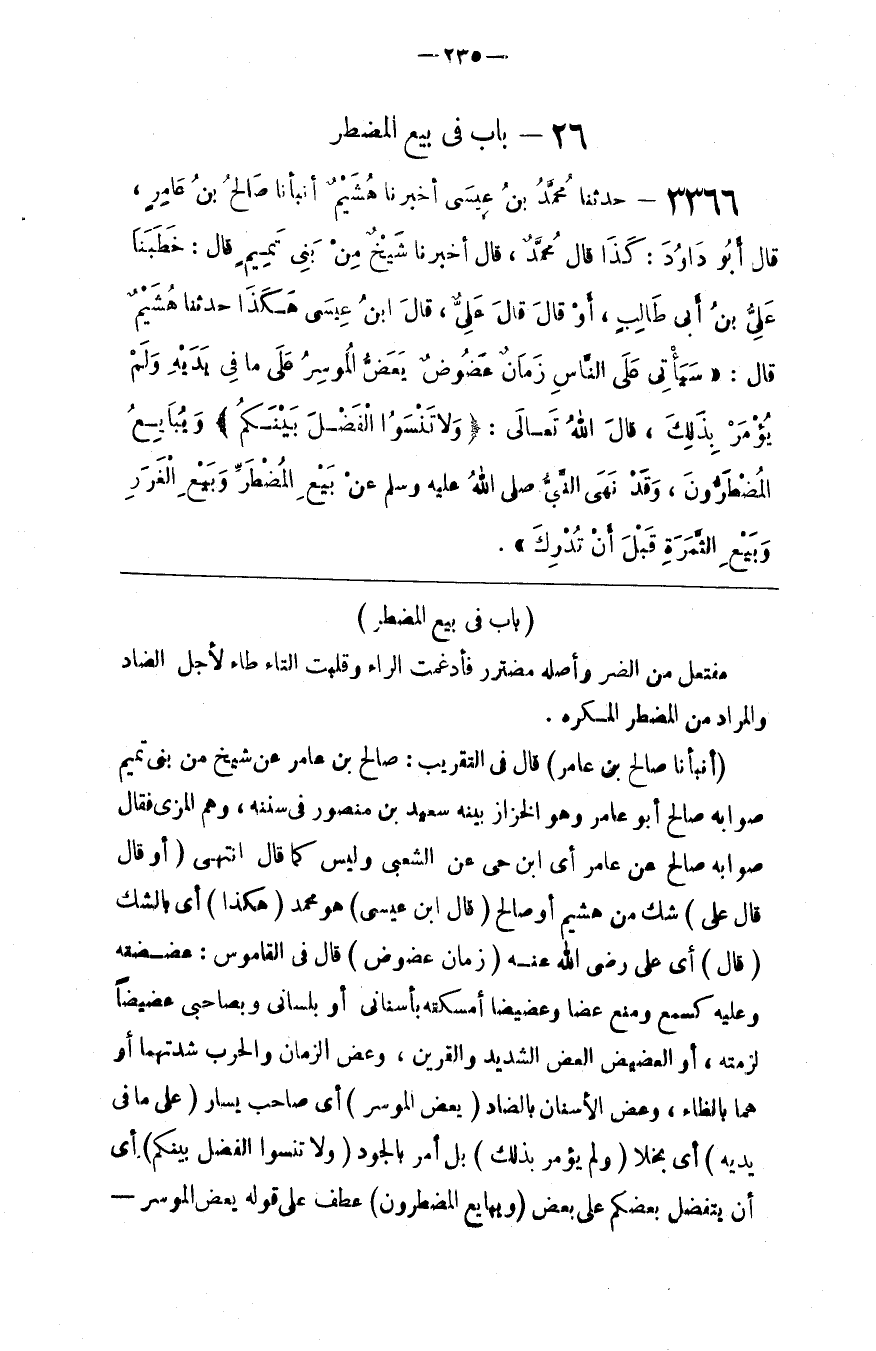 — ٢٣٥ —
٢٦ — باب فى بيع المضطر
٣٣٦٦ — حدثنا مُحمَّدُ بنُ عِيسَى أخبرنا هُشَيْمٌ أنبأنا صَالحُ بنُ عَامِرٍ ،
قال أَبُو دَاوُدَ : كَذَا قال مُحمَّدٌ ، قال أخبرنا شَيْخٌ مِنْ بَنِى تَمِيمٍ قال : خَطَبَنَا
عَلِىُّ بنُ أَبى طَالِبٍ ، أَوْ قالَ قالَ عَلِىٌّ ، قالَ ابنُ عِيسَى هَـكَذَا حدثنا هُشَيْمٌ
قال : « سَيَأْتِى عَلَى النَّاسِ زَمَانٌ عَضُوضٌ يَعَضُّ الْمُوسِرُ عَلَى ما فِى يَدَيْهِ وَلَمْ
يُؤْمَرْ بِذَلِكَ ، قالَ اللهُ تَعـالَى : ﴿ وَلا تَنْسَوُا الْفَضْـلَ بَيْنَـكمُ ﴾ وَيُبَايِـعُ
المُضْطَرُّونَ ، وَقَدْ نَهَى النَّبىُّ صلى اللهُ عليه وسلم عنْ بَيْعِ المُضْطَرِّ وَبَيْعِ الْغَرَرِ
وَبَيْعِ الثَّمَرَةِ قَبْلَ أَنْ تُدْرِكَ » .
( باب فى بيع المضطر )
مفتعل من الضر وأصله مضترر فأدغمت الراء وقلبت التاء طاء لأجل الضاد
والمراد من المضطر المـكره .
(أنبأنا صالح بن عامر) قال فى التقريب : صالح بن عامر عن شيخ من بنى تميم
صوابه صالح أبو عامر وهو الخزاز بينه سعيد بن منصور فى سننه ، وهم المزى فقال
صوابه صالح عن عامر أى ابن حى عن الشعبى وليس كما قال انتهى ( أو قال
قال على ) شك من هشيم أو صالح ( قال ابن عيسى) هو محمد ( هكذا ) أى بالشك
( قال ) أى على رضى الله عنـه ( زمان عضوض ) قال فى القاموس : عضـضته
وعليه كسمع ومنع عضا وعضيضا أمسكته بأسنانى أو بلسانى وبصاحبى عضيضاً
لزمته ، أو العضيض العض الشديد والقرين ، وعض الزمان والحرب شدتهما أو
هما بالظاء ، وعض الأسنان بالضاد ( يعض الموسر ) أى صاحب يسار ( على ما فى
يديه ) أى بخلا ( ولم يؤمر بذلك ) بل أمر بالجود ( ولا تنسوا الفضل بينكم) أى
أن يتفضل بعضكم على بعض (ويبايع المضطرون) عطف على قوله يعض الموسر —